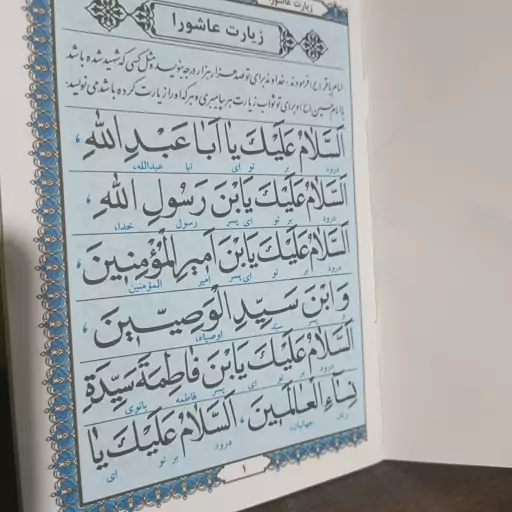 زیارت عاشورا
زیارت عاشورا
امام باقر (ع) فرمودند: خداوند برای تو صد هزار هزار درجه بنویسد و مثل کسی که شهید شده باشد
با امام حسین (ع) و برای تو ثواب زیارت هر پیامبری و هر که او را زیارت کرده باشد می نویسد
اَلسَّلَامُ عَلَيْكَ يَا اَبَا عَبْدِ اللهِ،
درود بر تو ای ابا عبدالله،
اَلسَّلَامُ عَلَيْكَ يَابْنَ رَسُولِ اللهِ،
درود بر تو ای پسر رسول خدا،
اَلسَّلَامُ عَلَيْكَ يَابْنَ اَمِيرِ الْمُؤْمِنِينَ،
درود بر تو ای پسر امیر المؤمنین
وَ ابْنَ سَيِّدِ الْوَصِيِّينَ،
و پسر سید اوصیاء،
اَلسَّلَامُ عَلَيْكَ يَابْنَ فَاطِمَةَ سَيِّدَةِ
درود بر تو ای پسر فاطمه بانوی
نِسَاءِ الْعَالَمِينَ، اَلسَّلَامُ عَلَيْكَ يَا
زنان جهانیان، درود بر تو ای
۱